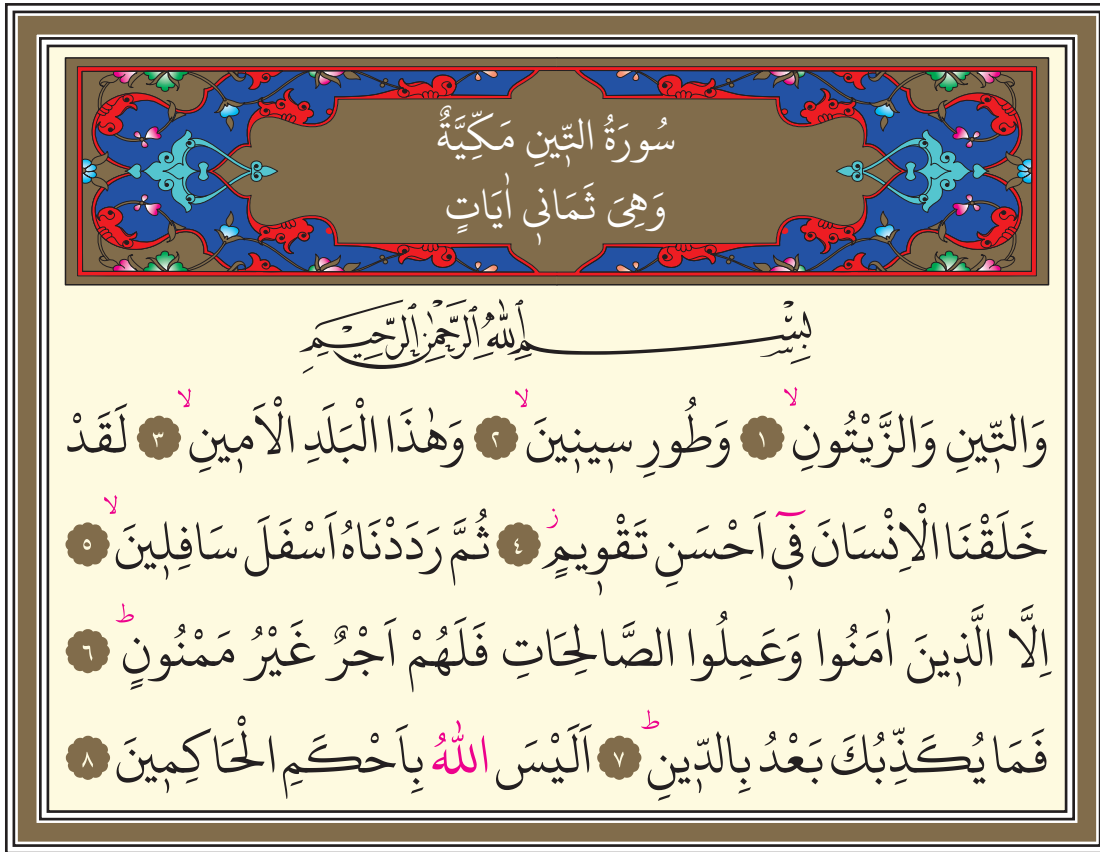 سُورَةُ التّ۪ينِ مَكِّيَّةٌ
وَهِيَ ثَمَان۪ي اٰيَاتٍ
بِسْمِ اللّٰهِ الرَّحْمٰنِ الرَّح۪يمِ
وَالتّ۪ينِ وَالزَّيْتُونِۙ ﴿١﴾ وَطُورِ س۪ين۪ينَۙ ﴿٢﴾ وَهٰذَا الْبَلَدِ الْاَم۪ينِۙ ﴿٣﴾ لَقَدْ
خَلَقْنَا الْاِنْسَانَ ف۪ٓي اَحْسَنِ تَقْو۪يمٍۘ ﴿٤﴾ ثُمَّ رَدَدْنَاهُ اَسْفَلَ سَافِل۪ينَۙ ﴿٥﴾
اِلَّا الَّذ۪ينَ اٰمَنُوا وَعَمِلُوا الصَّالِحَاتِ فَلَهُمْ اَجْرٌ غَيْرُ مَمْنُونٍۜ ﴿٦﴾
فَمَا يُكَذِّبُكَ بَعْدُ بِالدّ۪ينِۜ ﴿٧﴾ اَلَيْسَ اللّٰهُ بِاَحْكَمِ الْحَاكِم۪ينَ ﴿٨﴾